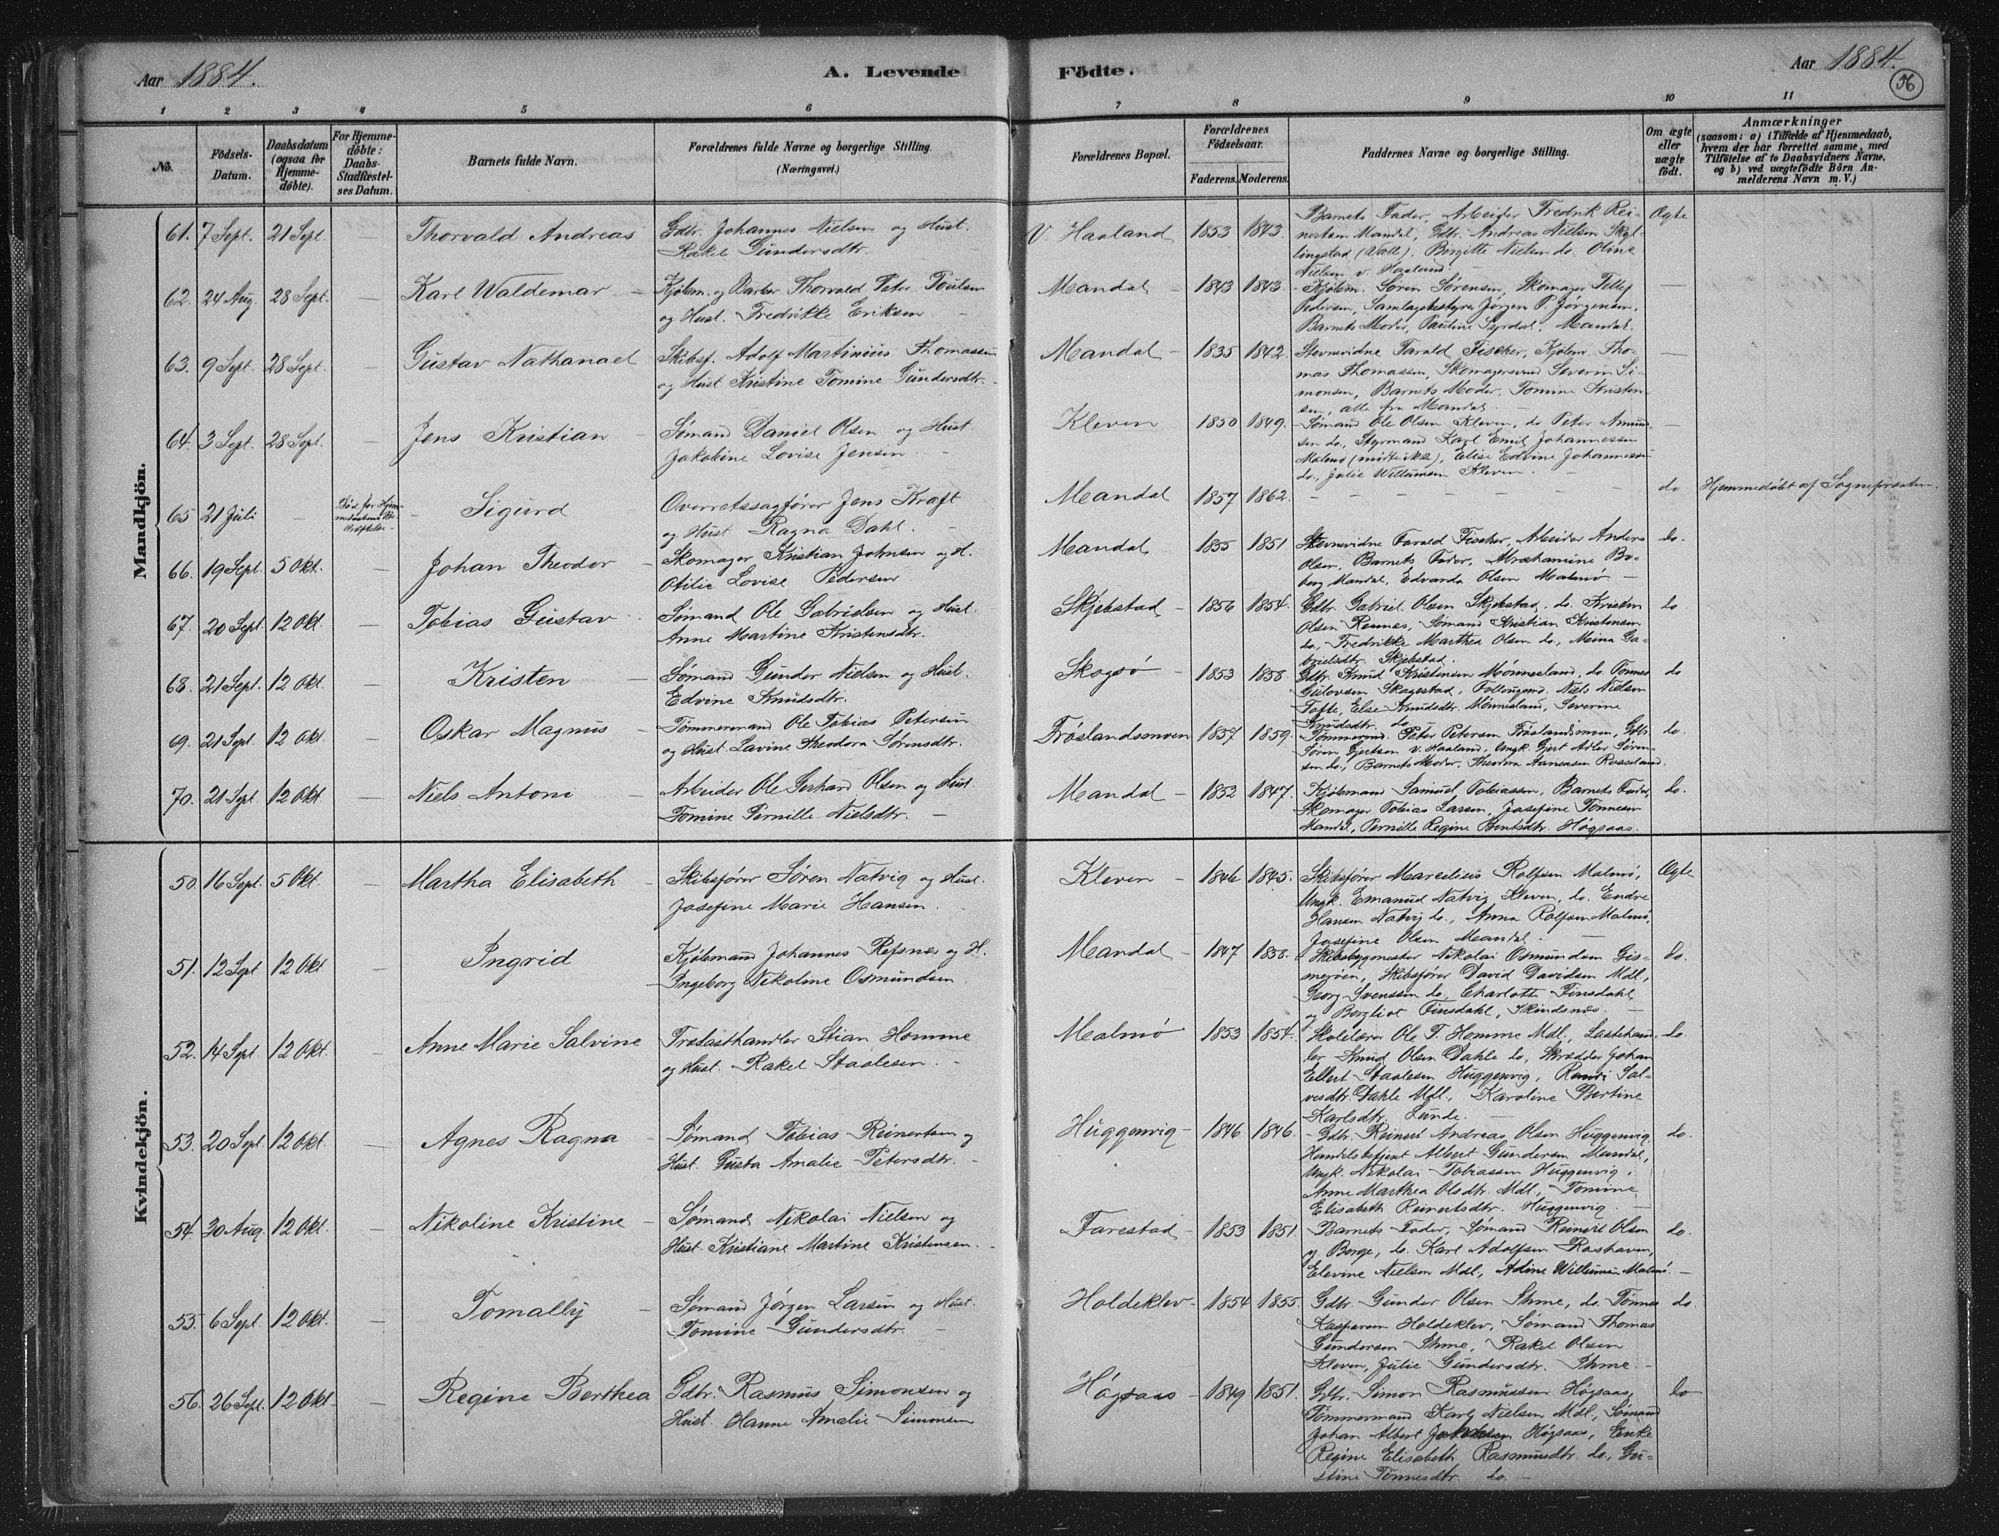 Aar 1884.
A. Levende
Födte.
Aar 1884.
56
1 2 3 4 5 6 7 8 9 10 11
No.
Födsels-
Datum.
Daabsdatum
(ogsaa for
Hjemme-
döbte).
For Hjemme-
döbte:
Daabs-
Stadfæstel-
ses Datum.
Barnets fulde Navn.
Forældrenes fulde Navne og borgerlige Stilling.
(Næringsvei.)
Forældrenes Bopæl.
Forældrenes
Födselsaar.
Faderens. Moderens.
Faddernes Navne og borgerlige Stilling.
Om ægte
eller
uægte
födt.
Anmærkninger
(saasom: a) i Tilfælde af Hjemmedaab,
hvem der har forrettet samme, med
Tilföielse af to Daabsvidners Navne,
og b) ved uægtefödte Börn An-
melderens Navn m. V.)
Mandkjön.
61. 7 Sept. 21 Sept. Thorvald Andreas
Gdbr. Johannes Nielsen og Hust.
Rakel Gundersdtr.
V. Haaland 1853 1843.
Barnets Fader, Arbeider Fredrik Rei-
nertsen Mandal, Gdbr. Andreas Nielsen
(Valle), Birgitte Nielsen do. Oline
Nielsen v. Haaland
Ægte
62. 24 Aug. 28 Sept. — Karl Waldemar —
Kjøbm. og Barber Thorvald Peter Poulsen
og Hust. Fredrikke Eriksen.
Mandal — 1843 1843.
Kjøbm. Søren Sørensen, Skomager Tellef
Pedersen, Samlagsbestyrer Jørgen P. Jørgensen,
Barnets Moder, Pauline Syrdal, Mandal.
—
63. 9 Sept. 28 Sept. — Gustav Nathanael
Skibsf. Adolf Martinius Thomassen
og Hust. Kristine Tomine Gundersdtr.
Mandal — 1835 1842.
Stevnevidne Tarald Fischer, Kjøbm. Tho-
mas Thomassen, Skomagersvend Severin Si-
monsen, Barnets Moder, Tomine Kristen-
sen, alle fra Mandal. —
64. 3 Sept. 28 Sept. — Jens Kristian —
Sømand Daniel Olsen og Hust.
Jakobine Lovise Jensen.
Kleven 1850 1849.
Sømand Ole Olsen Kleven, do Peter Amund-
sen do, Styrmand Karl Emil Johannessen
Malmø, Elise Edvine Johannessen
do, Julie Willumsen Kleven.
65 21 Juli — Sigurd
Overretssagfører Jens Kraft
og Hust Ragna Dahl.
Mandal 1857 1862.
do
Hjemmedøbt af Sognepræsten.
66. 19 Sept. 5 Okt. — Johan Theodor —
Skomager Kristian Johnsen og H.
Otilie Lovise Pedersen.
Mandal 1855 1851.
Stevnevidne Tarald Fischer, Arbeider Anders
Olsen, Barnets Fader, Abrahamine Bo-
berg Mandal, Edvarda Olsen Malmø —
do.
67. 20 Sept. 12 Okt. — Tobias Gustav
Sømand Ole Gabrielsen og Hust.
Anne Martine Kristensdtr.
Skjebstad — 1856 1854.
Gdbr. Gabriel Olsen Skjebstad, do. Kristen
Olsen Rennes, Sømand Kristian Kristensen
do, Fredrikke Marthea Olsen do, Meina Ga-
brielsdtr. Skjebstad.
do
68. 21 Sept. 12 Okt. — Kristen
Sømand Gunder Nielsen og Hust.
Edvine Knudsdtr.
Skogsø — 1853 1858.
Gdbr. Knud Kristensen Mønnesland, do. Tønnes
Gulovsen Skagestad, Niels Nielsen
Tofte, Else Knudsdtr. Mønnesland, Severine
Knudsdtr. do.
do
69. 21 Sept. 12 Okt. — Oskar Magnus
Tømmermand Ole Tobias Petersen
og Hust Lavine Theodora Sørensdtr.
Frøslandsmoen 1857 1859.
Tømmermd. Peter Petersen Frøslandsmoen, Gdbr.
Søren Gjertsen v. Haaland, Ungk. Gjert Adler Søren-
sen do, Barnets Moder, Theodora Aanensen Rosseland.
do.
70. 21 Sept. 12 Okt. — Niels Antoni
Arbeider Ole Gerhard Olsen og Hust
Tomine Pernille Nielsdtr. —
Mandal — 1852 1847.
Kjøbmand Samuel Tobiassen, Barnets Fader,
Skomager Tobias Larsen, Josefine Tønnesen
Mandal, Pernille Regine Berntsdtr. Høgsaas.
do.
Kvindekjön.
50. 16 Sept. 5 Okt. — Martha Elisabeth —
Skibsfører Søren Natvig og Hust.
Josefine Marie Hansen.
Kleven — 1846 1845.
Skibsfører Marselius Rolfsen Malmø,
Ungk. Emanuel Natvig Kleven, do. Endre
Hansen Natvig do., Anna Rolfsen Malmø,
Josefine Olsen Mandal. —
Ægte
51. 12 Sept 12 Okt. — Ingrid
Kjøbmand Johannes Refsnes og H.
Ingeborg Nikoline Osmundsen.
Mandal — 1847 1858.
Skibsbygmester Nikolai Osmundsen Gis-
merøen, Skibsfører David Davidsen Mdl,
Georg Svenssen do, Charlotte Finsdahl
og Bergliot Finsdahl, Skindsnes —
do.
52. 14 Sept 12 Okt. — Anne Marie Salvine
Trælasthandler Stian Homme
og Hust. Rakel Staalesen.
Malmø 1853 1854.
Skolelærer Ole T. Homme Mdl,
Knud Olsen Dahle do, Skrædder Johan
Ellert Staalesen Huggenvig, Randi Sal-
vesdtr. Dahle Mdl., Karoline Bertine
Karlsdtr. Lunde. —
do.
53. 20 Sept 12 Okt. — Agnes Ragna —
Sømand Tobias Reinertsen og
Hust. Gusta Amalie Petersdtr. —
Huggenvig — 1846 1846.
Gdbr. Reinert Andreas Olsen Huggenvig,
Handelsbetjent Albert Gundersen Mandal,
Ungk. Nikolai Tobiassen Huggenvig,
Anne Marthea Olsdtr. Mdl, Tomine
Elisabeth Reinertsdtr. Huggenvig —
do.
54. 30 Aug. 12 Okt. — Nikoline Kristine —
Sømand Nikolai Nielsen og
Hust. Kristiane Martine Kristensen.
Farestad — 1853 1851.
Barnets Fader, Sømand Reinert Olsen
Berge, do. Karl Adolfsen Roshaven,
Elevine Nielsen Mdl, Adine Willumsen Malmø. —
do.
55. 6 Sept. 12 Okt. — Tomally —
Sømand Jørgen Larsen og Hust.
Tomine Gundersdtr. —
Holdeklev — 1854 1855.
Gdbr. Gunder Olsen Ihme, do. Tønnes
Kaspersen Holdeklev, Sømand Thomas
Gundersen Ihme, Rakel Olsen
Kleven, Julie Gundersdtr. Ihme —
do.
56. 26 Sept. 12 Okt. — Regine Berthea
Gdbr. Rasmus Simonsen og
Hust. Hanne Amalie Simonsen
Høgsaas — 1849 1851.
Gdbr. Simon Rasmussen Høgsaas,
Tømmermand Karl Nielsen Mdl., Sømand
Johan Albert Høgsaas, Enke
Regine Elisabeth Rasmusdtr. do, Gu-
stine Tønnesdtr. do. —
do